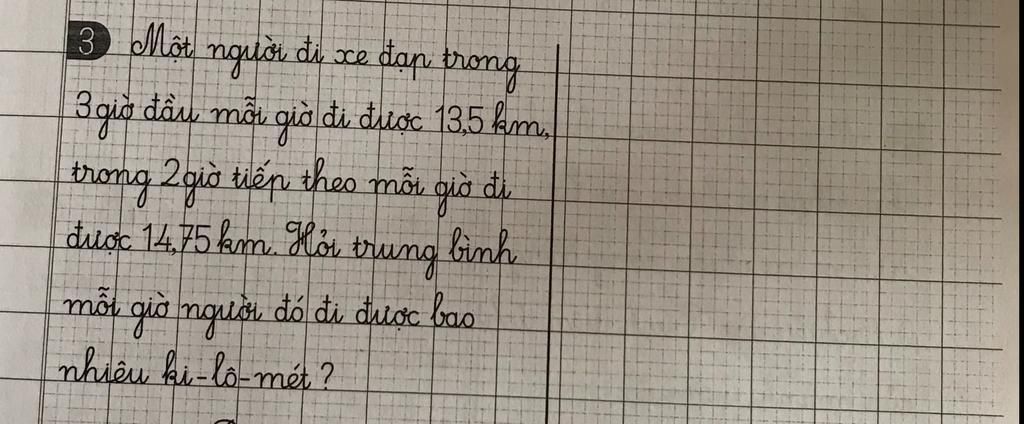 3 Một người đi xe đạp trong
3 giờ đầu mỗi giờ đi được 13,5 km,
trong 2 giờ tiến theo mỗi giờ đi
được 14,75 km. Hỏi trung bình
mỗi giờ người đó đi được bao
nhiêu ki-lô-mét?